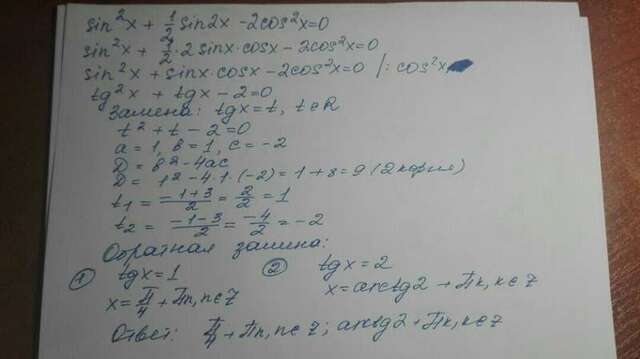 sin²x + 1/2 sin2x - 2cos²x = 0
sin²x + 1/2 · 2 sinx · cosx - 2cos²x = 0
sin²x + sinx · cosx - 2cos²x = 0 / : cos²x
tg²x + tgx - 2 = 0
Замена: tgx = t, t ∈ R
t² + t - 2 = 0
a = 1, b = 1, c = -2
D = b² - 4ac
D = 1² - 4·1·(-2) = 1 + 8 = 9 (2 корня)
t₁ = (-1+3)/2 = 2/2 = 1
t₂ = (-1-3)/2 = -4/2 = -2
Обратная замина:
① tgx = 1 ② tgx = 2
x = π/4 + πn, n∈Z x = arctg2 + πk, k∈Z
Ответ: π/4 + πn, n∈Z; arctg2 + πk, k∈Z